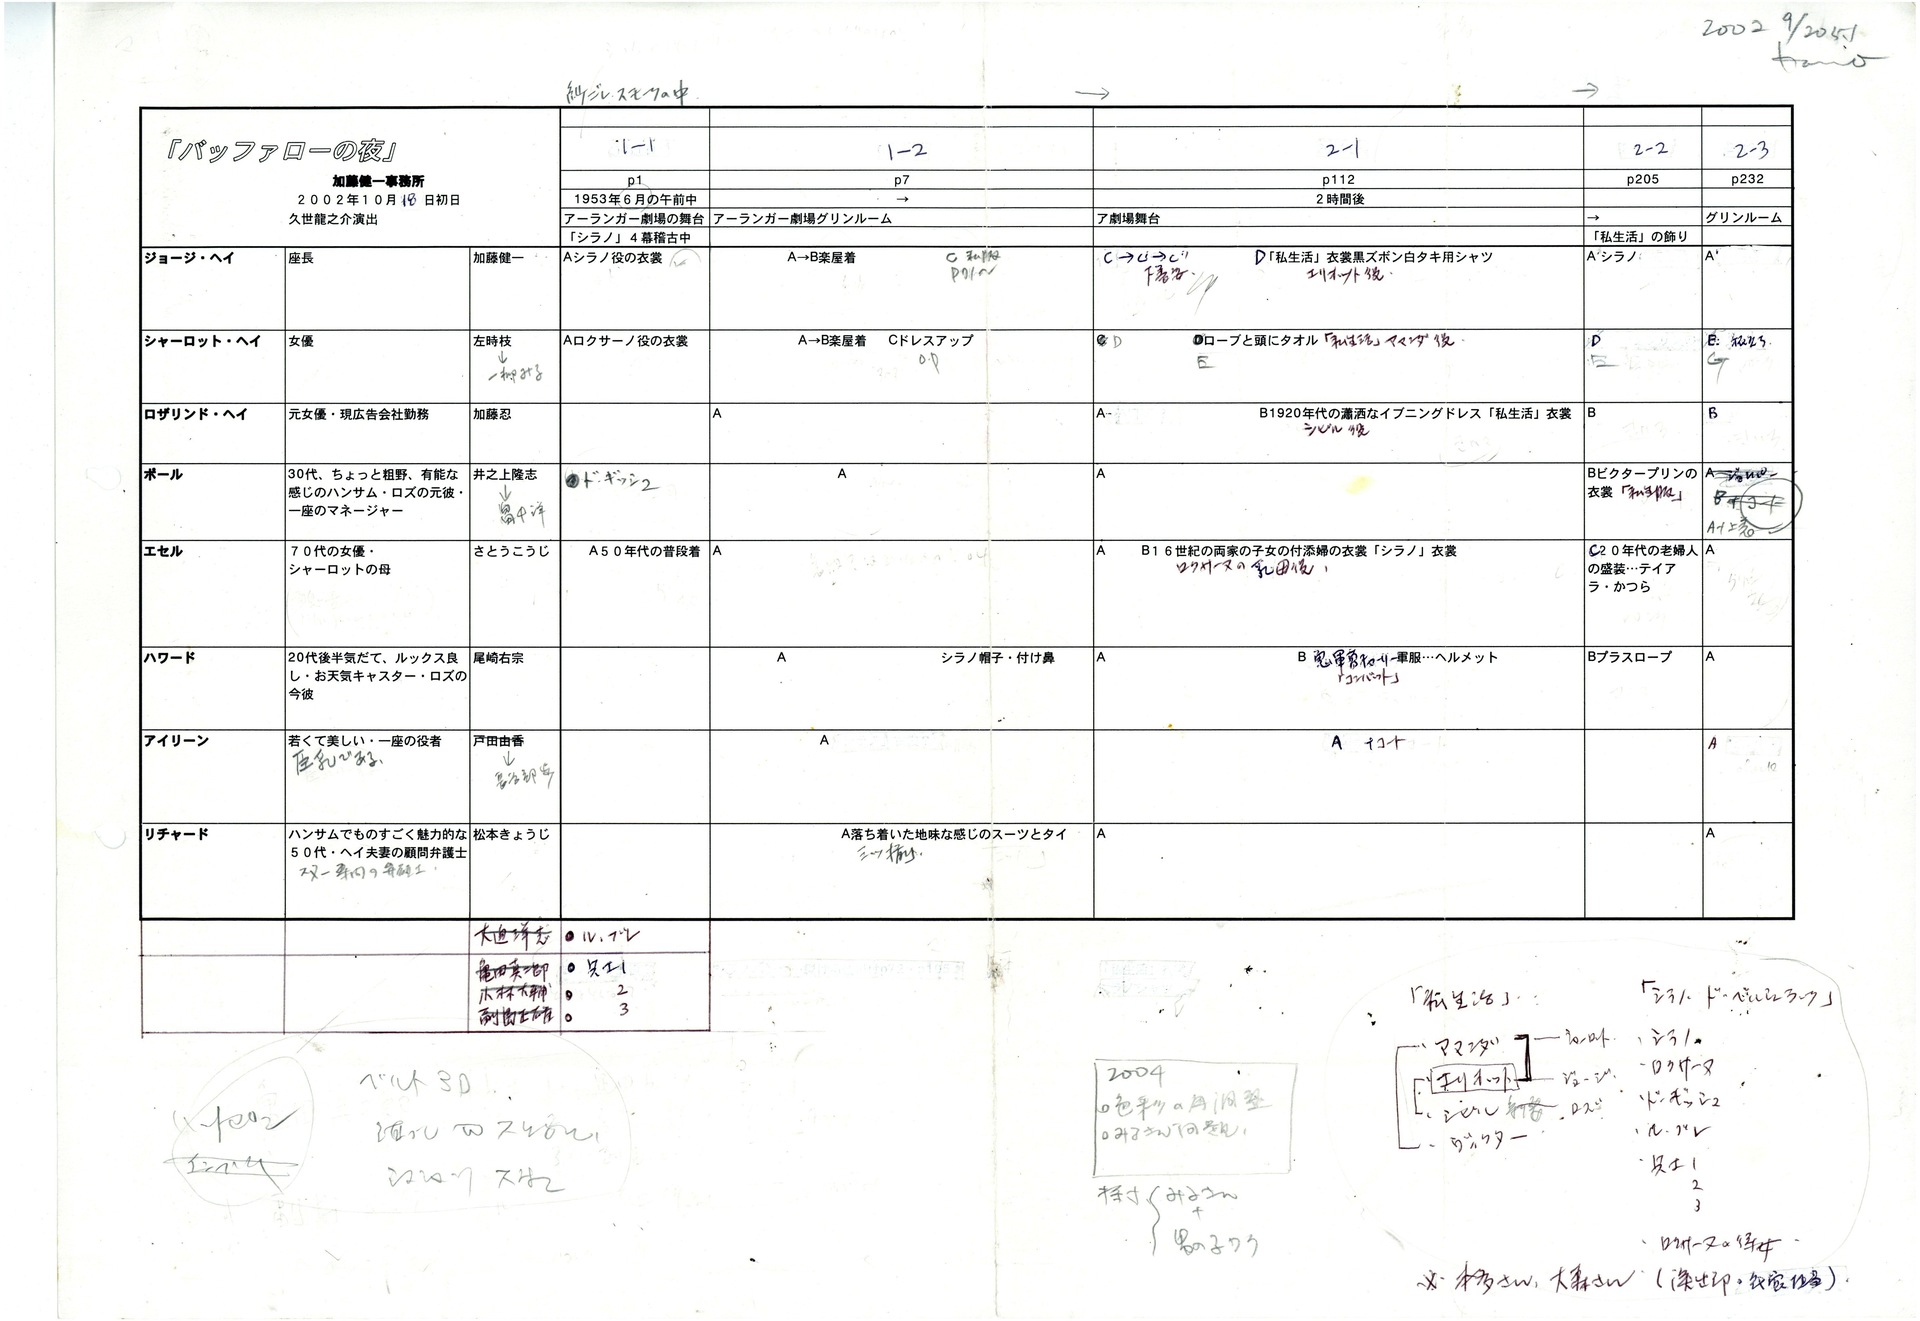 2002 9/20
→ →
「バッファローの夜」
加藤健一事務所
2002年10月18日初日
久世龍之介演出
1-1 1-2 2-1 2-2 2-3
p1 p7 p112 p205 p232
1953年6月の午前中 → 2時間後
アーランガー劇場の舞台 アーランガー劇場グリンルーム ア劇場舞台 → グリンルーム
「シラノ」4幕稽古中 「私生活」の飾り
ジョージ・ヘイ 座長 加藤健一 Aシラノ役の衣裳 A→B楽屋着 C D「私生活」衣裳黒ズボン白タキ用シャツ A'シラノ A'
下着姿 エリオット役
シャーロット・ヘイ 女優 左時枝 Aロクサーノ役の衣裳 A→B楽屋着 Cドレスアップ D Dローブと頭にタオル「私生活」アマンダ役 D E
↓
一柳みる E E G
ロザリンド・ヘイ 元女優・現広告会社勤務 加藤忍 A A B1920年代の瀟洒なイブニングドレス「私生活」衣裳 B B
シビル役
ポール 30代、ちょっと粗野、有能な 井之上隆志 ド・ギッシュ A A Bビクタープリンの A
感じのハンサム・ロズの元彼・ ↓ 衣裳「私生活」
一座のマネージャー 畠中洋 A+上着
エセル 70代の女優・ さとうこうじ A50年代の普段着 A A B16世紀の両家の子女の付添婦の衣裳「シラノ」衣裳 C20年代の老婦人 A
シャーロットの母 ロクサーヌの乳母役 の盛装…テイア
ラ・かつら
ハワード 20代後半気だて、ルックス良 尾崎右宗 A シラノ帽子・付け鼻 A B 軍服…ヘルメット Bプラスローブ A
し・お天気キャスター・ロズの 「コンバット」
今彼
アイリーン 若くて美しい・一座の役者 戸田由香 A A +コート A
巨乳である。 ↓
リチャード ハンサムでものすごく魅力的な 松本きょうじ A落ち着いた地味な感じのスーツとタイ A A
50代・ヘイ夫妻の顧問弁護士 三ツ揃い
大迫洋志 ル・ブレ
亀田真二郎 兵士1
小林大輔 2
副島正雄 3
ベルト3D
2004
みるさん
+
男の子ワク
「私生活」
アマンダ シャーロット
エリオット ジョージ
シビル ロズ
ヴィクター
「シラノ・ド・ベルジュラック」
・シラノ
・ロクサーヌ
・ド・ギッシュ
・ル・ブレ
・兵士1
2
3
・ロクサーヌの侍女
※ 本多さん、大森さん